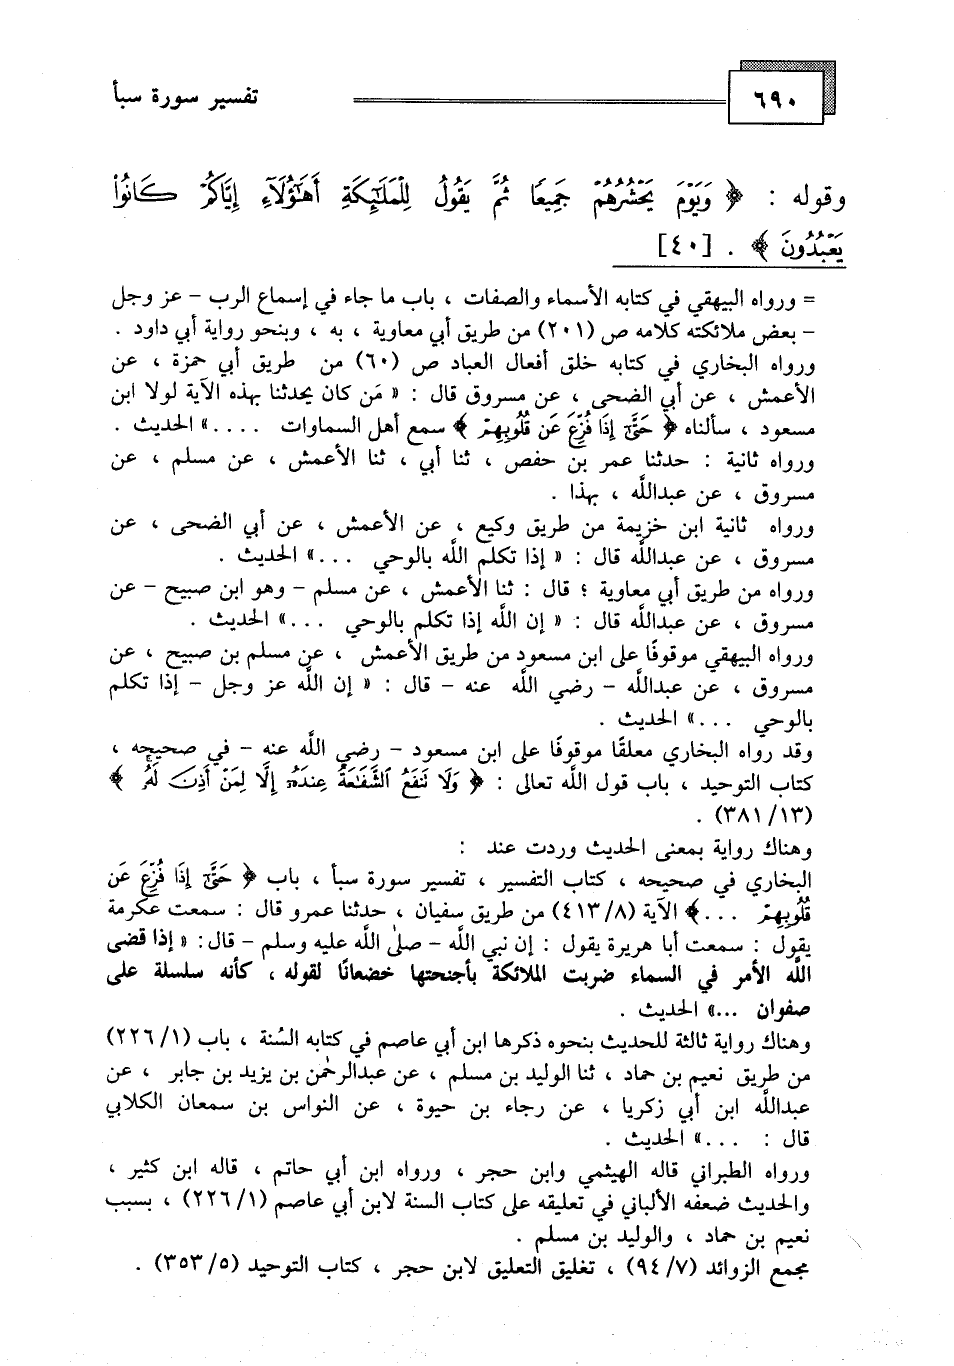 ٦٩٠
تفسير سورة سبأ
وقوله : ﴿ وَيَوْمَ يَحْشُرُهُمْ جَمِيعًا ثُمَّ يَقُولُ لِلْمَلَٰٓئِكَةِ أَهَٰٓؤُلَآءِ إِيَّاكُمْ كَانُوا۟
يَعْبُدُونَ ﴾ . [٤٠]
= ورواه البيهقي في كتابه الأسماء والصفات ، باب ما جاء في إسماع الرب – عز وجل
– بعض ملائكته كلامه ص (٢٠١) من طريق أبي معاوية ، به ، وبنحو رواية أبي داود .
ورواه البخاري في كتابه خلق أفعال العباد ص (٦٠) من طريق أبي حمزة ، عن
الأعمش ، عن أبي الضحى ، عن مسروق قال : « مَن كان يحدثنا بهذه الآية لولا ابن
مسعود ، سألناه ﴿ حَتَّىٰٓ إِذَا فُزِّعَ عَن قُلُوبِهِمْ ﴾ سمع أهل السماوات ....» الحديث .
ورواه ثانية : حدثنا عمر بن حفص ، ثنا أبي ، ثنا الأعمش ، عن مسلم ، عن
مسروق ، عن عبدالله ، بهذا .
ورواه ثانية ابن خزيمة من طريق وكيع ، عن الأعمش ، عن أبي الضحى ، عن
مسروق ، عن عبدالله قال : « إذا تكلم الله بالوحي ...» الحديث .
ورواه من طريق أبي معاوية ؛ قال : ثنا الأعمش ، عن مسلم – وهو ابن صبيح – عن
مسروق ، عن عبدالله قال : « إن الله إذا تكلم بالوحي ...» الحديث .
ورواه البيهقي موقوفًا على ابن مسعود من طريق الأعمش ، عن مسلم بن صبيح ، عن
مسروق ، عن عبدالله – رضي الله عنه – قال : « إن الله عز وجل – إذا تكلم
بالوحي ...» الحديث .
وقد رواه البخاري معلقًا موقوفًا على ابن مسعود – رضي الله عنه – في صحيحه ،
كتاب التوحيد ، باب قول الله تعالى : ﴿ وَلَا نَنفَعُ ٱلشَّفَٰعَةُ عِندَهُۥٓ إِلَّا لِمَنْ أَذِنَ لَهُۥ ﴾
(٣٨١/١٣) .
وهناك رواية بمعنى الحديث وردت عند :
البخاري في صحيحه ، كتاب التفسير ، تفسير سورة سبأ ، باب ﴿ حَتَّىٰٓ إِذَا فُزِّعَ عَن
قُلُوبِهِمْ ...﴾ الآية (٤١٣/٨) من طريق سفيان ، حدثنا عمرو قال : سمعت عكرمة
يقول : سمعت أبا هريرة يقول : إن نبي الله – صلى الله عليه وسلم – قال: « إذا قضى
الله الأمر في السماء ضربت الملائكة بأجنحتها خضعانًا لقوله ، كأنه سلسلة على
صفوان ...» الحديث .
وهناك رواية ثالثة للحديث بنحوه ذكرها ابن أبي عاصم في كتابه السُنة ، باب (٢٢٦/١)
من طريق نعيم بن حماد ، ثنا الوليد بن مسلم ، عن عبدالرحمٰن بن يزيد بن جابر ، عن
عبدالله ابن أبي زكريا ، عن رجاء بن حيوة ، عن النواس بن سمعان الكلابي
قال : ...» الحديث .
ورواه الطبراني قاله الهيثمي وابن حجر ، ورواه ابن أبي حاتم ، قاله ابن كثير ،
والحديث ضعفه الألباني في تعليقه على كتاب السنة لابن أبي عاصم (٢٢٦/١) ، بسبب
نعيم بن حماد ، والوليد بن مسلم .
مجمع الزوائد (٩٤/٧) ، تغليق التعليق لابن حجر ، كتاب التوحيد (٣٥٣/٥) .